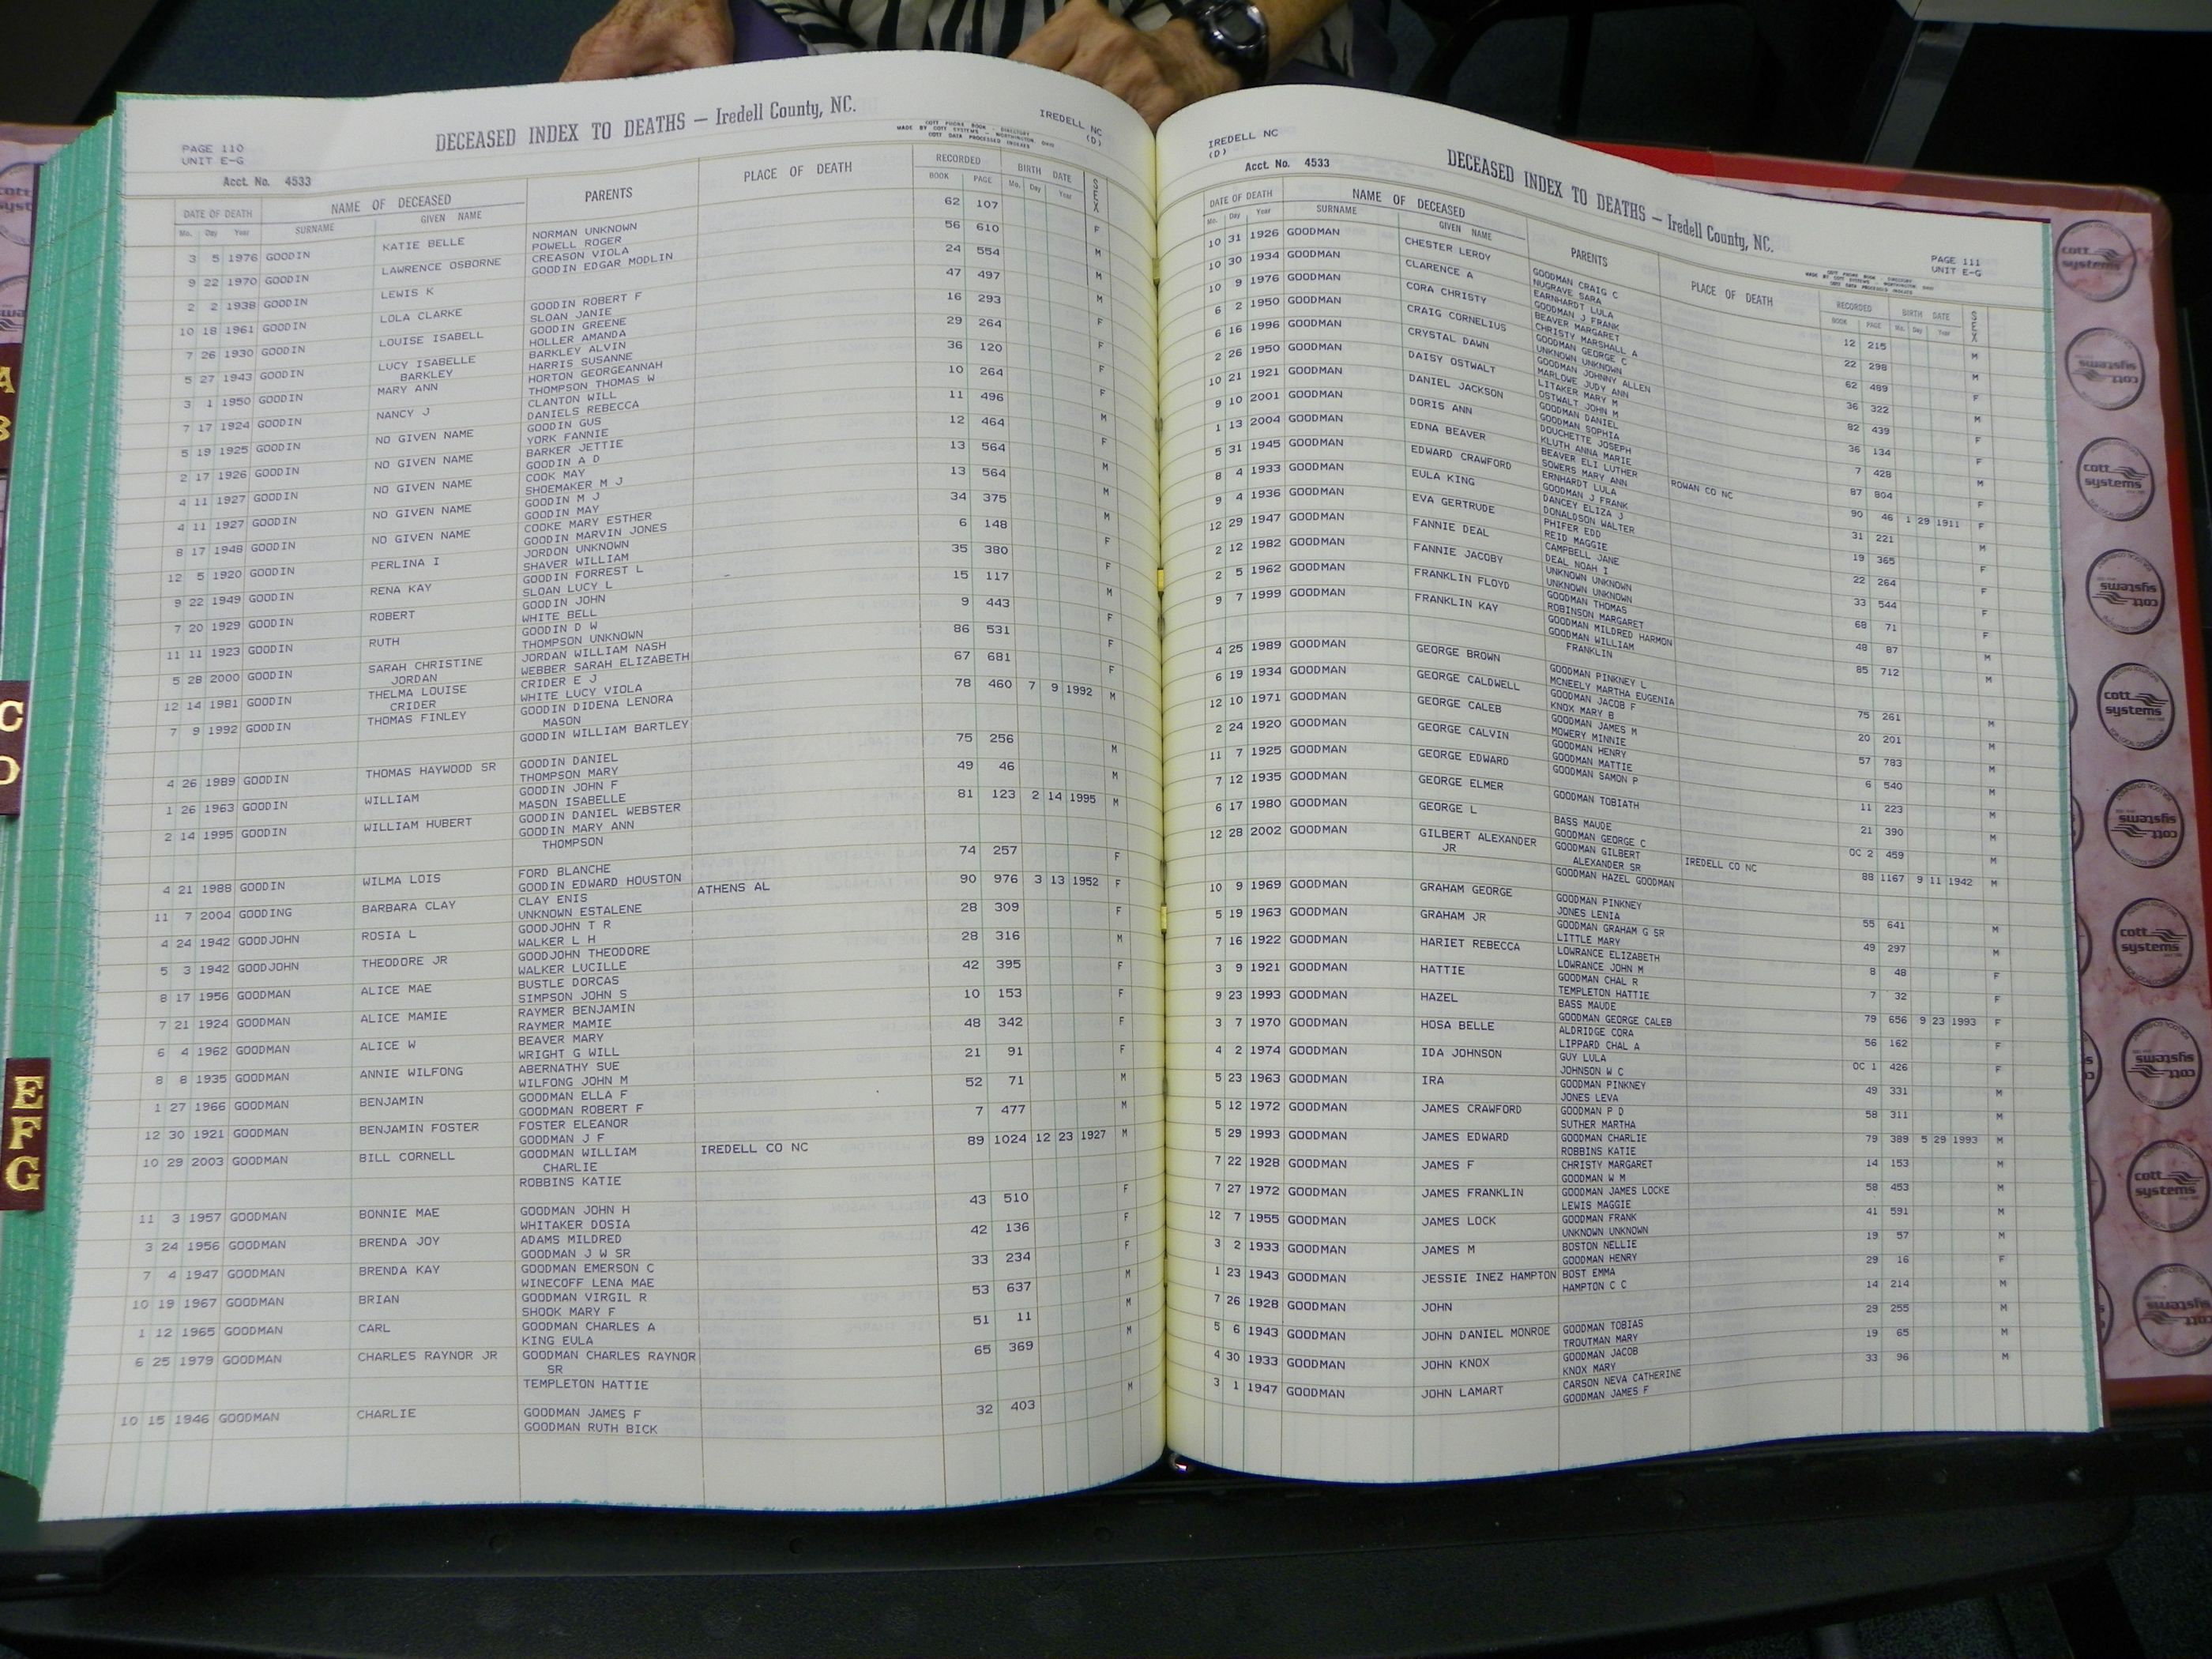 PAGE 110
UNIT E-G
DECEASED INDEX TO DEATHS — Iredell County, NC.
COTT PHONE BOOK - DIRECTORY
MADE BY COTT SYSTEMS - WORTHINGTON OHIO
COTT DATA PROCESSED INDEXES
IREDELL NC
(D)
Acct. No. 4533
DATE OF DEATH NAME OF DECEASED PARENTS PLACE OF DEATH RECORDED BIRTH DATE SEX
Mo. Day Year SURNAME GIVEN NAME BOOK PAGE Mo. Day Year
3 5 1976 GOODIN KATIE BELLE NORMAN UNKNOWN 62 107 F
POWELL ROGER
9 22 1970 GOODIN LAWRENCE OSBORNE CREASON VIOLA 56 610 M
GOODIN EDGAR MODLIN
2 2 1938 GOODIN LEWIS K 24 554 M
10 18 1961 GOODIN LOLA CLARKE GOODIN ROBERT F 47 497 M
SLOAN JANIE
7 26 1930 GOODIN LOUISE ISABELL GOODIN GREENE 16 293 F
HOLLER AMANDA
5 27 1943 GOODIN LUCY ISABELLE BARKLEY ALVIN 29 264 F
BARKLEY HARRIS SUSANNE
3 1 1950 GOODIN MARY ANN HORTON GEORGEANNAH 36 120 F
THOMPSON THOMAS W
7 17 1924 GOODIN NANCY J CLANTON WILL 10 264 F
DANIELS REBECCA
5 19 1925 GOODIN NO GIVEN NAME GOODIN GUS 11 496 M
YORK FANNIE
2 17 1926 GOODIN NO GIVEN NAME BARKER JETTIE 12 464 F
GOODIN A D
4 11 1927 GOODIN NO GIVEN NAME COOK MAY 13 564 M
SHOEMAKER M J
4 11 1927 GOODIN NO GIVEN NAME GOODIN M J 13 564 M
GOODIN MAY
8 17 1948 GOODIN NO GIVEN NAME COOKE MARY ESTHER 34 375 M
GOODIN MARVIN JONES
12 5 1920 GOODIN PERLINA I JORDON UNKNOWN 6 148 F
SHAVER WILLIAM
9 22 1949 GOODIN RENA KAY GOODIN FORREST L 35 380 F
SLOAN LUCY L
7 20 1929 GOODIN ROBERT GOODIN JOHN 15 117 M
WHITE BELL
11 11 1923 GOODIN RUTH GOODIN D W 9 443 F
THOMPSON UNKNOWN
5 28 2000 GOODIN SARAH CHRISTINE JORDAN WILLIAM NASH 86 531 F
JORDAN WEBBER SARAH ELIZABETH
12 14 1981 GOODIN THELMA LOUISE CRIDER E J 67 681 F
CRIDER WHITE LUCY VIOLA
7 9 1992 GOODIN THOMAS FINLEY GOODIN DIDENA LENORA 78 460 7 9 1992 M
MASON
GOODIN WILLIAM BARTLEY
4 26 1989 GOODIN THOMAS HAYWOOD SR GOODIN DANIEL 75 256 M
THOMPSON MARY
1 26 1963 GOODIN WILLIAM GOODIN JOHN F 49 46 M
MASON ISABELLE
2 14 1995 GOODIN WILLIAM HUBERT GOODIN DANIEL WEBSTER 81 123 2 14 1995 M
GOODIN MARY ANN
THOMPSON
4 21 1988 GOODIN WILMA LOIS FORD BLANCHE 74 257 F
GOODIN EDWARD HOUSTON
11 7 2004 GOODING BARBARA CLAY CLAY ENIS ATHENS AL 90 976 3 13 1952 F
UNKNOWN ESTALENE
4 24 1942 GOODJOHN ROSIA L GOODJOHN T R 28 309 F
WALKER L H
5 3 1942 GOODJOHN THEODORE JR GOODJOHN THEODORE 28 316 M
WALKER LUCILLE
8 17 1956 GOODMAN ALICE MAE BUSTLE DORCAS 42 395 F
SIMPSON JOHN S
7 21 1924 GOODMAN ALICE MAMIE RAYMER BENJAMIN 10 153 F
RAYMER MAMIE
6 4 1962 GOODMAN ALICE W BEAVER MARY 48 342 F
WRIGHT G WILL
8 8 1935 GOODMAN ANNIE WILFONG ABERNATHY SUE 21 91 F
WILFONG JOHN M
1 27 1966 GOODMAN BENJAMIN GOODMAN ELLA F 52 71 M
GOODMAN ROBERT F
12 30 1921 GOODMAN BENJAMIN FOSTER FOSTER ELEANOR 7 477 M
GOODMAN J F
10 29 2003 GOODMAN BILL CORNELL GOODMAN WILLIAM IREDELL CO NC 89 1024 12 23 1927 M
CHARLIE
ROBBINS KATIE
11 3 1957 GOODMAN BONNIE MAE GOODMAN JOHN H 43 510 F
WHITAKER DOSIA
3 24 1956 GOODMAN BRENDA JOY ADAMS MILDRED 42 136 F
GOODMAN J W SR
7 4 1947 GOODMAN BRENDA KAY GOODMAN EMERSON C 33 234 F
WINECOFF LENA MAE
10 19 1967 GOODMAN BRIAN GOODMAN VIRGIL R 53 637 M
SHOOK MARY F
1 12 1965 GOODMAN CARL GOODMAN CHARLES A 51 11 M
KING EULA
6 25 1979 GOODMAN CHARLES RAYNOR JR GOODMAN CHARLES RAYNOR 65 369 M
SR
TEMPLETON HATTIE
10 15 1946 GOODMAN CHARLIE GOODMAN JAMES F 32 403 M
GOODMAN RUTH BICK
IREDELL NC
(D)
DECEASED INDEX TO DEATHS — Iredell County, NC.
PAGE 111
UNIT E-G
COTT PHONE BOOK - DIRECTORY
MADE BY COTT SYSTEMS - WORTHINGTON OHIO
COTT DATA PROCESSED INDEXES
Acct. No. 4533
DATE OF DEATH NAME OF DECEASED PARENTS PLACE OF DEATH RECORDED BIRTH DATE SEX
Mo. Day Year SURNAME GIVEN NAME BOOK PAGE Mo. Day Year
10 31 1926 GOODMAN CHESTER LEROY GOODMAN CRAIG C 12 215 M
NUGRAVE SARA
10 30 1934 GOODMAN CLARENCE A EARNHARDT LULA 22 298 M
GOODMAN J FRANK
10 9 1976 GOODMAN CORA CHRISTY BEAVER MARGARET 62 489 F
CHRISTY MARSHALL A
6 2 1950 GOODMAN CRAIG CORNELIUS GOODMAN GEORGE C 36 322 M
UNKNOWN UNKNOWN
6 16 1996 GOODMAN CRYSTAL DAWN GOODMAN JOHNNY ALLEN 82 439 F
MARLOWE JUDY ANN
2 26 1950 GOODMAN DAISY OSTWALT LITAKER MARY M 36 134 F
OSTWALT JOHN M
10 21 1921 GOODMAN DANIEL JACKSON GOODMAN DANIEL 7 428 M
GOODMAN SOPHIA
9 10 2001 GOODMAN DORIS ANN DOUCHETTE JOSEPH 87 804 F
KLUTH ANNA MARIE
1 13 2004 GOODMAN EDNA BEAVER BEAVER ELI LUTHER ROWAN CO NC 90 46 1 29 1911 F
SOWERS MARY ANN
5 31 1945 GOODMAN EDWARD CRAWFORD ERNHARDT LULA 31 221 M
GOODMAN J FRANK
8 4 1933 GOODMAN EULA KING DANCEY ELIZA J 19 365 F
DONALDSON WALTER
9 4 1936 GOODMAN EVA GERTRUDE PHIFER EDD 22 264 F
REID MAGGIE
12 29 1947 GOODMAN FANNIE DEAL CAMPBELL JANE 33 544 F
DEAL NOAH I
2 12 1982 GOODMAN FANNIE JACOBY UNKNOWN UNKNOWN 68 71 F
UNKNOWN UNKNOWN
2 5 1962 GOODMAN FRANKLIN FLOYD GOODMAN THOMAS 48 87 M
ROBINSON MARGARET
9 7 1999 GOODMAN FRANKLIN KAY GOODMAN MILDRED HARMON 85 712 M
GOODMAN WILLIAM
FRANKLIN
4 25 1989 GOODMAN GEORGE BROWN GOODMAN PINKNEY L 75 261 M
MCNEELY MARTHA EUGENIA
6 19 1934 GOODMAN GEORGE CALDWELL GOODMAN JACOB F 20 201 M
KNOX MARY B
12 10 1971 GOODMAN GEORGE CALEB GOODMAN JAMES M 57 783 M
MOWERY MINNIE
2 24 1920 GOODMAN GEORGE CALVIN GOODMAN HENRY 6 540 M
GOODMAN MATTIE
11 7 1925 GOODMAN GEORGE EDWARD GOODMAN SAMON P 11 223 M
7 12 1935 GOODMAN GEORGE ELMER GOODMAN TOBIATH 21 390 M
6 17 1980 GOODMAN GEORGE L BASS MAUDE OC 2 459 M
GOODMAN GEORGE C
12 28 2002 GOODMAN GILBERT ALEXANDER GOODMAN GILBERT IREDELL CO NC 88 1167 9 11 1942 M
JR ALEXANDER SR
GOODMAN HAZEL GOODMAN
10 9 1969 GOODMAN GRAHAM GEORGE GOODMAN PINKNEY 55 641 M
JONES LENIA
5 19 1963 GOODMAN GRAHAM JR GOODMAN GRAHAM G SR 49 297 M
LITTLE MARY
7 16 1922 GOODMAN HARIET REBECCA LOWRANCE ELIZABETH 8 48 F
LOWRANCE JOHN M
3 9 1921 GOODMAN HATTIE GOODMAN CHAL R 7 32 F
TEMPLETON HATTIE
9 23 1993 GOODMAN HAZEL BASS MAUDE 79 656 9 23 1993 F
GOODMAN GEORGE CALEB
3 7 1970 GOODMAN HOSA BELLE ALDRIDGE CORA 56 162 F
LIPPARD CHAL A
4 2 1974 GOODMAN IDA JOHNSON GUY LULA OC 1 426 F
JOHNSON W C
5 23 1963 GOODMAN IRA GOODMAN PINKNEY 49 331 M
JONES LEVA
5 12 1972 GOODMAN JAMES CRAWFORD GOODMAN P D 58 311 M
SUTHER MARTHA
5 29 1993 GOODMAN JAMES EDWARD GOODMAN CHARLIE 79 389 5 29 1993 M
ROBBINS KATIE
7 22 1928 GOODMAN JAMES F CHRISTY MARGARET 14 153 M
GOODMAN W M
7 27 1972 GOODMAN JAMES FRANKLIN GOODMAN JAMES LOCKE 58 453 M
LEWIS MAGGIE
12 7 1955 GOODMAN JAMES LOCK GOODMAN FRANK 41 591 M
UNKNOWN UNKNOWN
3 2 1933 GOODMAN JAMES M BOSTON NELLIE 19 57 M
GOODMAN HENRY
1 23 1943 GOODMAN JESSIE INEZ HAMPTON BOST EMMA 29 16 F
HAMPTON C C
7 26 1928 GOODMAN JOHN 14 214 M
5 6 1943 GOODMAN JOHN DANIEL MONROE GOODMAN TOBIAS 29 255 M
TROUTMAN MARY
4 30 1933 GOODMAN JOHN KNOX GOODMAN JACOB 19 65 M
KNOX MARY
3 1 1947 GOODMAN JOHN LAMART CARSON NEVA CATHERINE 33 96 M
GOODMAN JAMES F
A
B
C
D
E
F
G
cott
systems